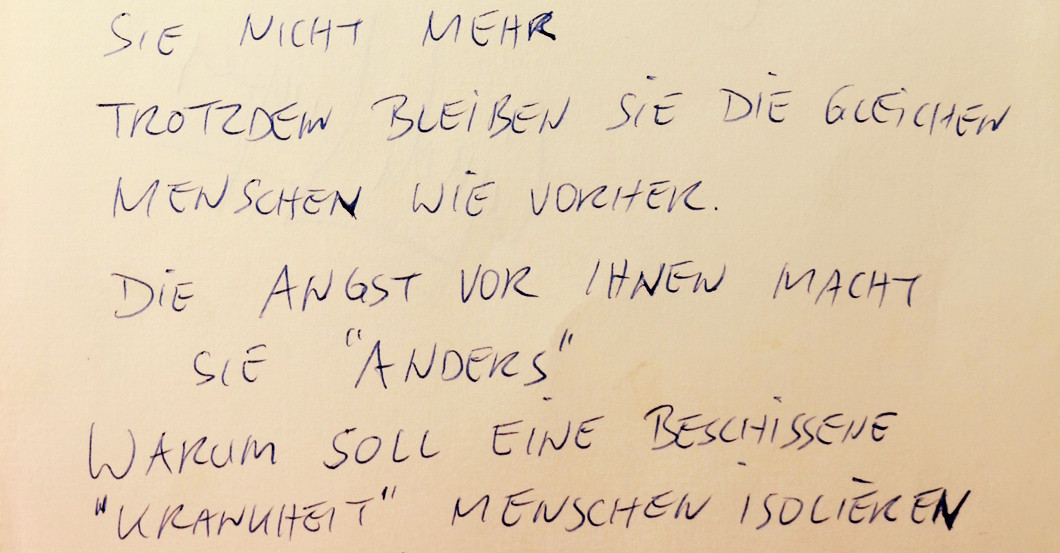 SIE NICHT MEHR
TROTZDEM BLEIBEN SIE DIE GLEICHEN
MENSCHEN WIE VORHER.
DIE ANGST VOR IHNEN MACHT
SIE "ANDERS"
WARUM SOLL EINE BESCHISSENE
"KRANKHEIT" MENSCHEN ISOLIEREN